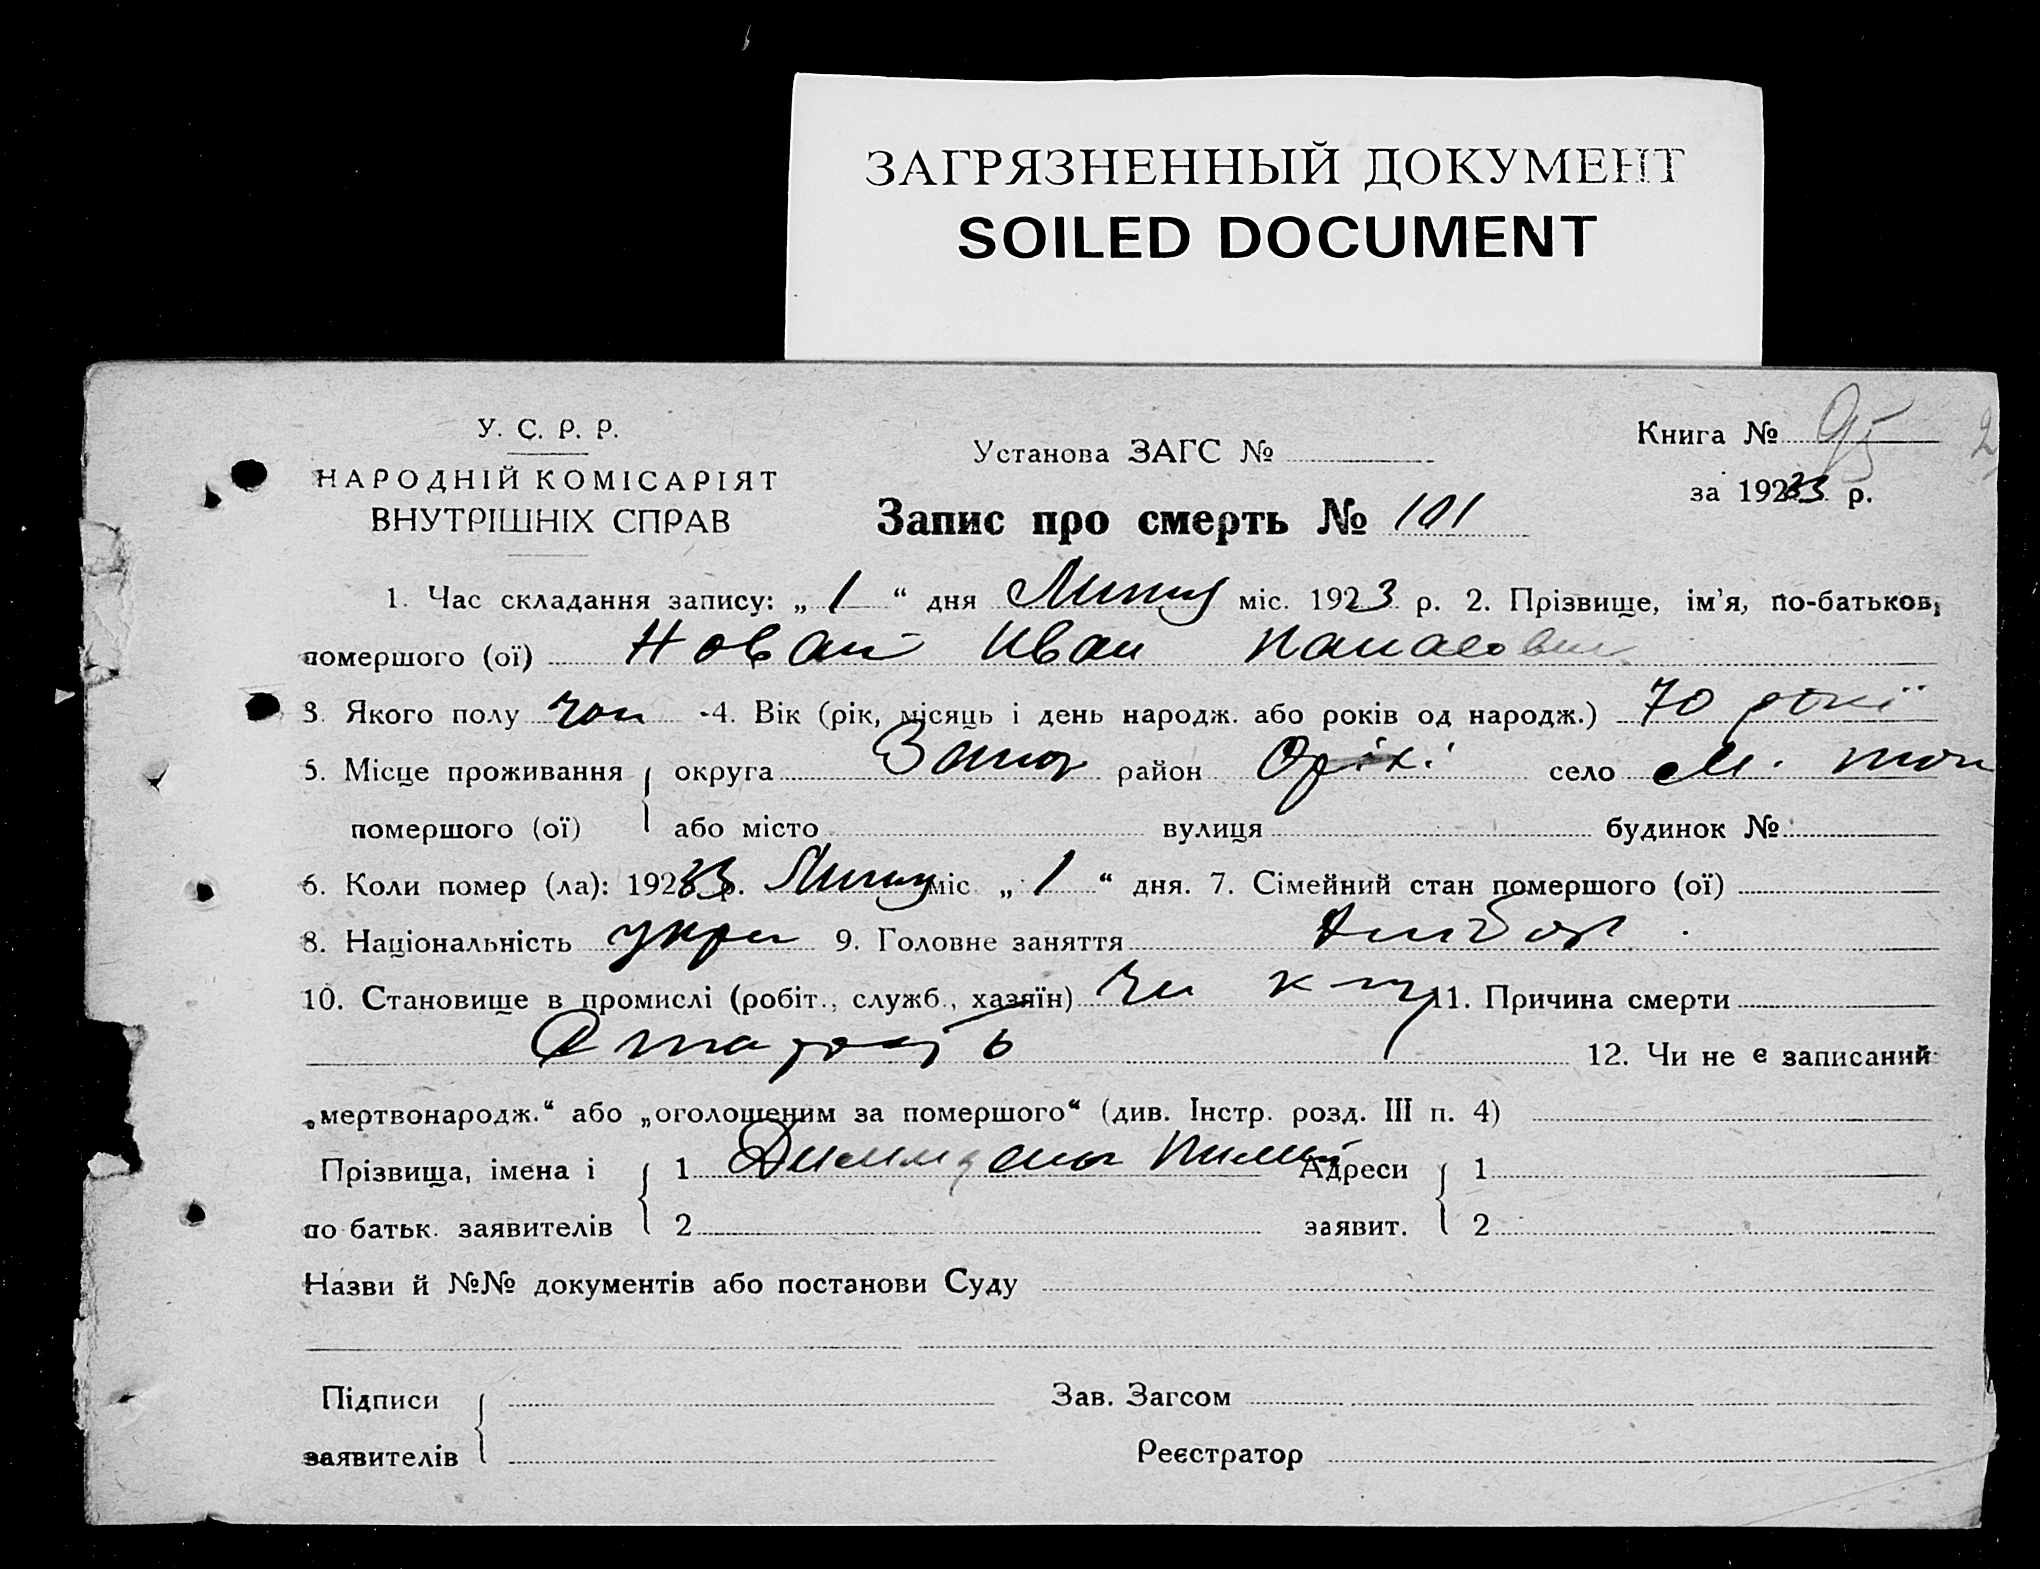 ЗАГРЯЗНЕННЫЙ ДОКУМЕНТ
SOILED DOCUMENT
У. С. Р. Р.
НАРОДНІЙ КОМІСАРІЯТ
ВНУТРІШНІХ СПРАВ
Установа ЗАГС №
Книга № 95
за 19233 р.
Запис про смерть № 101
1. Час складання запису: „ 1 “ дня Липня міс. 1923 р. 2. Прізвище, ім'я, по-батьков,
помершого (ої) Новак Иван Панасович
3 Якого полу чол 4. Вік (рік, місяць і день народж. або років од народж.) 70 років
5. Місце проживання округа Запор район Оріхі село М. Ток
помершого (ої) або місто вулиця будинок №
6. Коли помер (ла): 19233 р. Липня міс „ 1 “ дня. 7. Сімейний стан помершого (ої)
8. Національність укра 9. Головне заняття хлібор
10. Становище в промислі (робіт., служб., хазяїн) чл к-гу 11. Причина смерти
Старость 12. Чи не є записаний
„мертвонародж.“ або „оголошеним за помершого“ (див. Інстр. розд. III п. 4)
Прізвища, імена і 1 Адреси 1
по батьк. заявителів 2 заявит. 2
Назви й №№ документів або постанови Суду
Підписи Зав. Загсом
заявителів Реєстратор